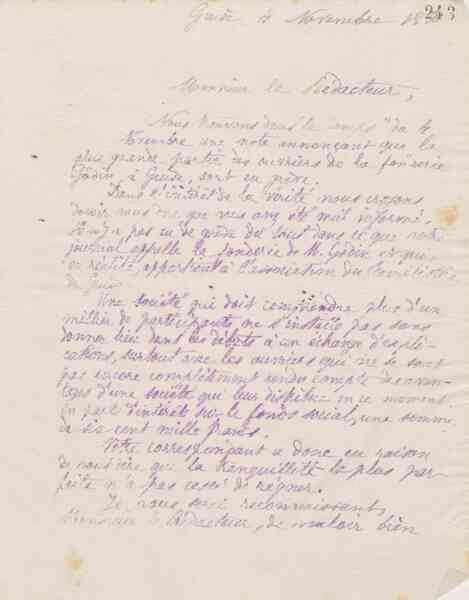 Guise Novembre 18
243
Monsieur le Rédacteur,
Nous trouvons dans le Temps du
Novembre une note annonçant que la
plus grande partie des ouvriers de la fonderie
Godin, à Guise, sont en grève.
Dans l'intérêt de la vérité nous croyons
devoir vous dire que vous avez été mal informé.
Il n'y a pas eu de grève du tout dans ce que votre
journal appelle la fonderie de M. Godin et qui,
en réalité, appartient à l'association du Familistère
de Guise.
Une société qui doit comprendre plus d'un
millier de participants, ne s'installe pas sans
donner lieu dans les débuts à un échange d'expli-
cations, surtout avec les ouvriers qui ne se sont
pas encore complètement rendu compte des avan-
tages d'une société qui leur distribue en ce moment
en part d'intérêt sur le fonds social, une somme
de six cent mille francs.
Votre correspondant a donc eu raison
de vous dire que la tranquillité la plus par-
faite n'a pas cessé de régner.
Je vous serai reconnaissant,
Monsieur le Rédacteur, de vouloir bien